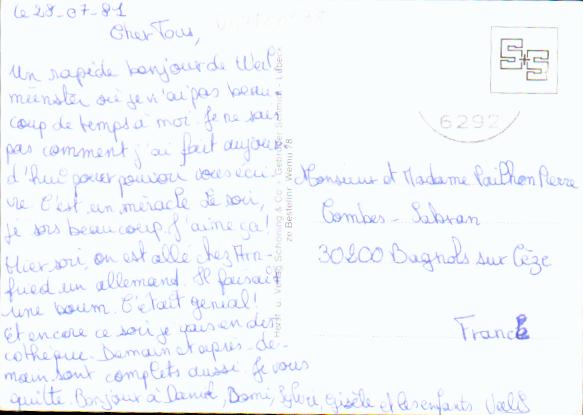 Le 28-07-81
Cher Tous,
Un rapide bonjour de Weil-
münster où je n'ai pas beau-
coup de temps à moi. Je ne sais
pas comment j'ai fait aujour-
d'hui pour pouvoir vous écri-
re. C'est un miracle. Le soir,
je sors beaucoup. J'aime ça!
Hier soir, on est allé chez Arn-
fried un allemand. Il faisait
une boum. C'était génial!
Et encore ce soir je vais en dis-
cothèque. Demain et après-de-
main sont complets aussi. Je vous
quitte. Bonjour à Daniel, Domi, Sylvie Gisèle et les enfants.
Horst u. Schöning & Co · Gebrüder Schmidt · Lübeck
ze Bestellnr. Wemu 78
S+S
6292
Monsieur et Madame Pailhon Pierre
Combes - Sabran
30200 Bagnols sur Cèze
France